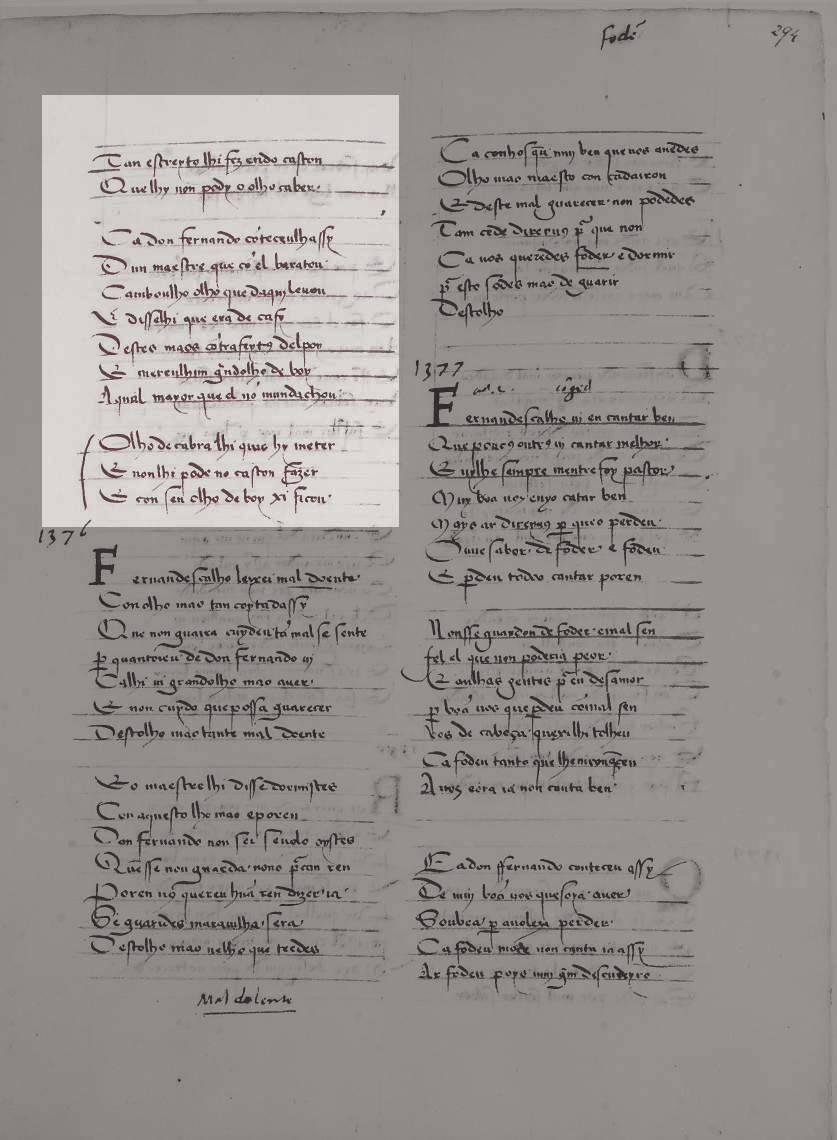 Tan estreyto lhi fez endo caston
Que lhy non pody o olho caber.
Ca don fernando cōteceulhassy
Dun maestre que cō el baratou.
Camboulho olho que daqui levou
E disselhi que era de casy
Destes maos cōtrafeytꝯ delpoy
E meteulhim gndolho de boy
Aqual mayor que el nō mundachou.
Olho de cabra lhi quis hy meter
E nonlhi pode no caston fazer
E con seu olho de boy xi ficou.
1376
Fernandescalho leixei mal doente.
Con olho mao tan coytadassy
Que non guaira cuydeu tō mal se sente
ꝑ quantoieu de don fernando vi
Calhi vi grandolho mao aver.
E non cuydo que possa guarecer
Destolho mao tante mal doente
Eo maestre lhi disse dormistes
Con aquestolho mao e poren
Don fernando non sei se volo oystes
Quēsse non guarda nono p̄can ren
Poren uꝯ quereu hūa ren dizer ia
Se guarides maravilha sera
Destolho mao velho que teedes
Mal dolente
fodī
294
Ca conhosq̄ū muy ben que vos avedes
Olho mao maesto con cadairon
E deste mal guarecer non podedes
Tam cēde direyuꝯ p̄ que non
Ca vos queredes foder e dormir
p̄ esto sodes mao de guarir
Destolho
1377
Fernandescalho vi eu cantar ben
Que poucꝯ outrꝯ vi cantar melhor.
E vylhe sempre mentre foy pastor
Muy boa voz enyo catar ben
Mays ar direyuꝯ ꝑ que o perdeu.
Ouve sabor de foder e fodeu
E ꝑdeu todoo cantar poren
Nonsse guardou de foder e mal sen
fel el que non poderia peor.
E anlhas gentes p̄ en desamor
ꝑ boā vos que ꝑdeu cōmal sen
Vos de cabeça queṛilhi tolheu
Ca fodeu tanto que lhenrouq̄ceu
A voz e ora ia non canta ben.
Ca don ffernando conteceu assy
De muy boā vos que soya aver
Soubea ꝑ avoleza perder
Ca fodeu moça e non canta ia assy
Ar fodeu poys muy gm̄ descudeyro